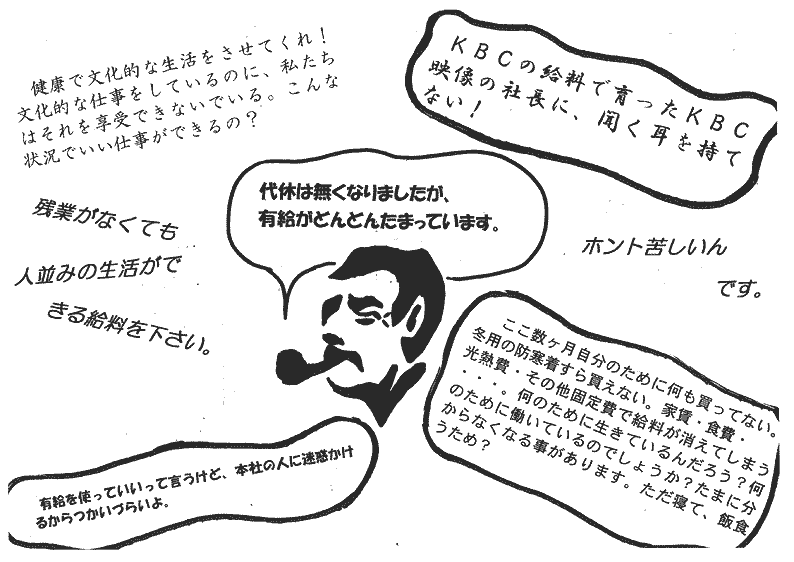 健康で文化的な生活をさせてくれ！
文化的な仕事をしているのに、私たち
はそれを享受できないでいる。こんな
状況でいい仕事ができるの？
ＫＢＣの給料で育ったＫＢＣ
映像の社長に、聞く耳を持て
ない！
代休は無くなりましたが、
有給がどんどんたまっています。
残業がなくても
人並みの生活がで
きる給料を下さい。
ホント苦しいん
です。
ここ数ヶ月自分のために何も買ってない。
冬用の防寒着すら買えない。家賃・食費・
光熱費・その他固定費で給料が消えてしまう
・・・。何のために生きているんだろう？何
のために働いているのでしょうか？たまに分
からなくなる事があります。ただ寝て、飯食
うため？
有給を使っていいって言うけど、本社の人に迷惑かけ
るからつかいづらいよ。